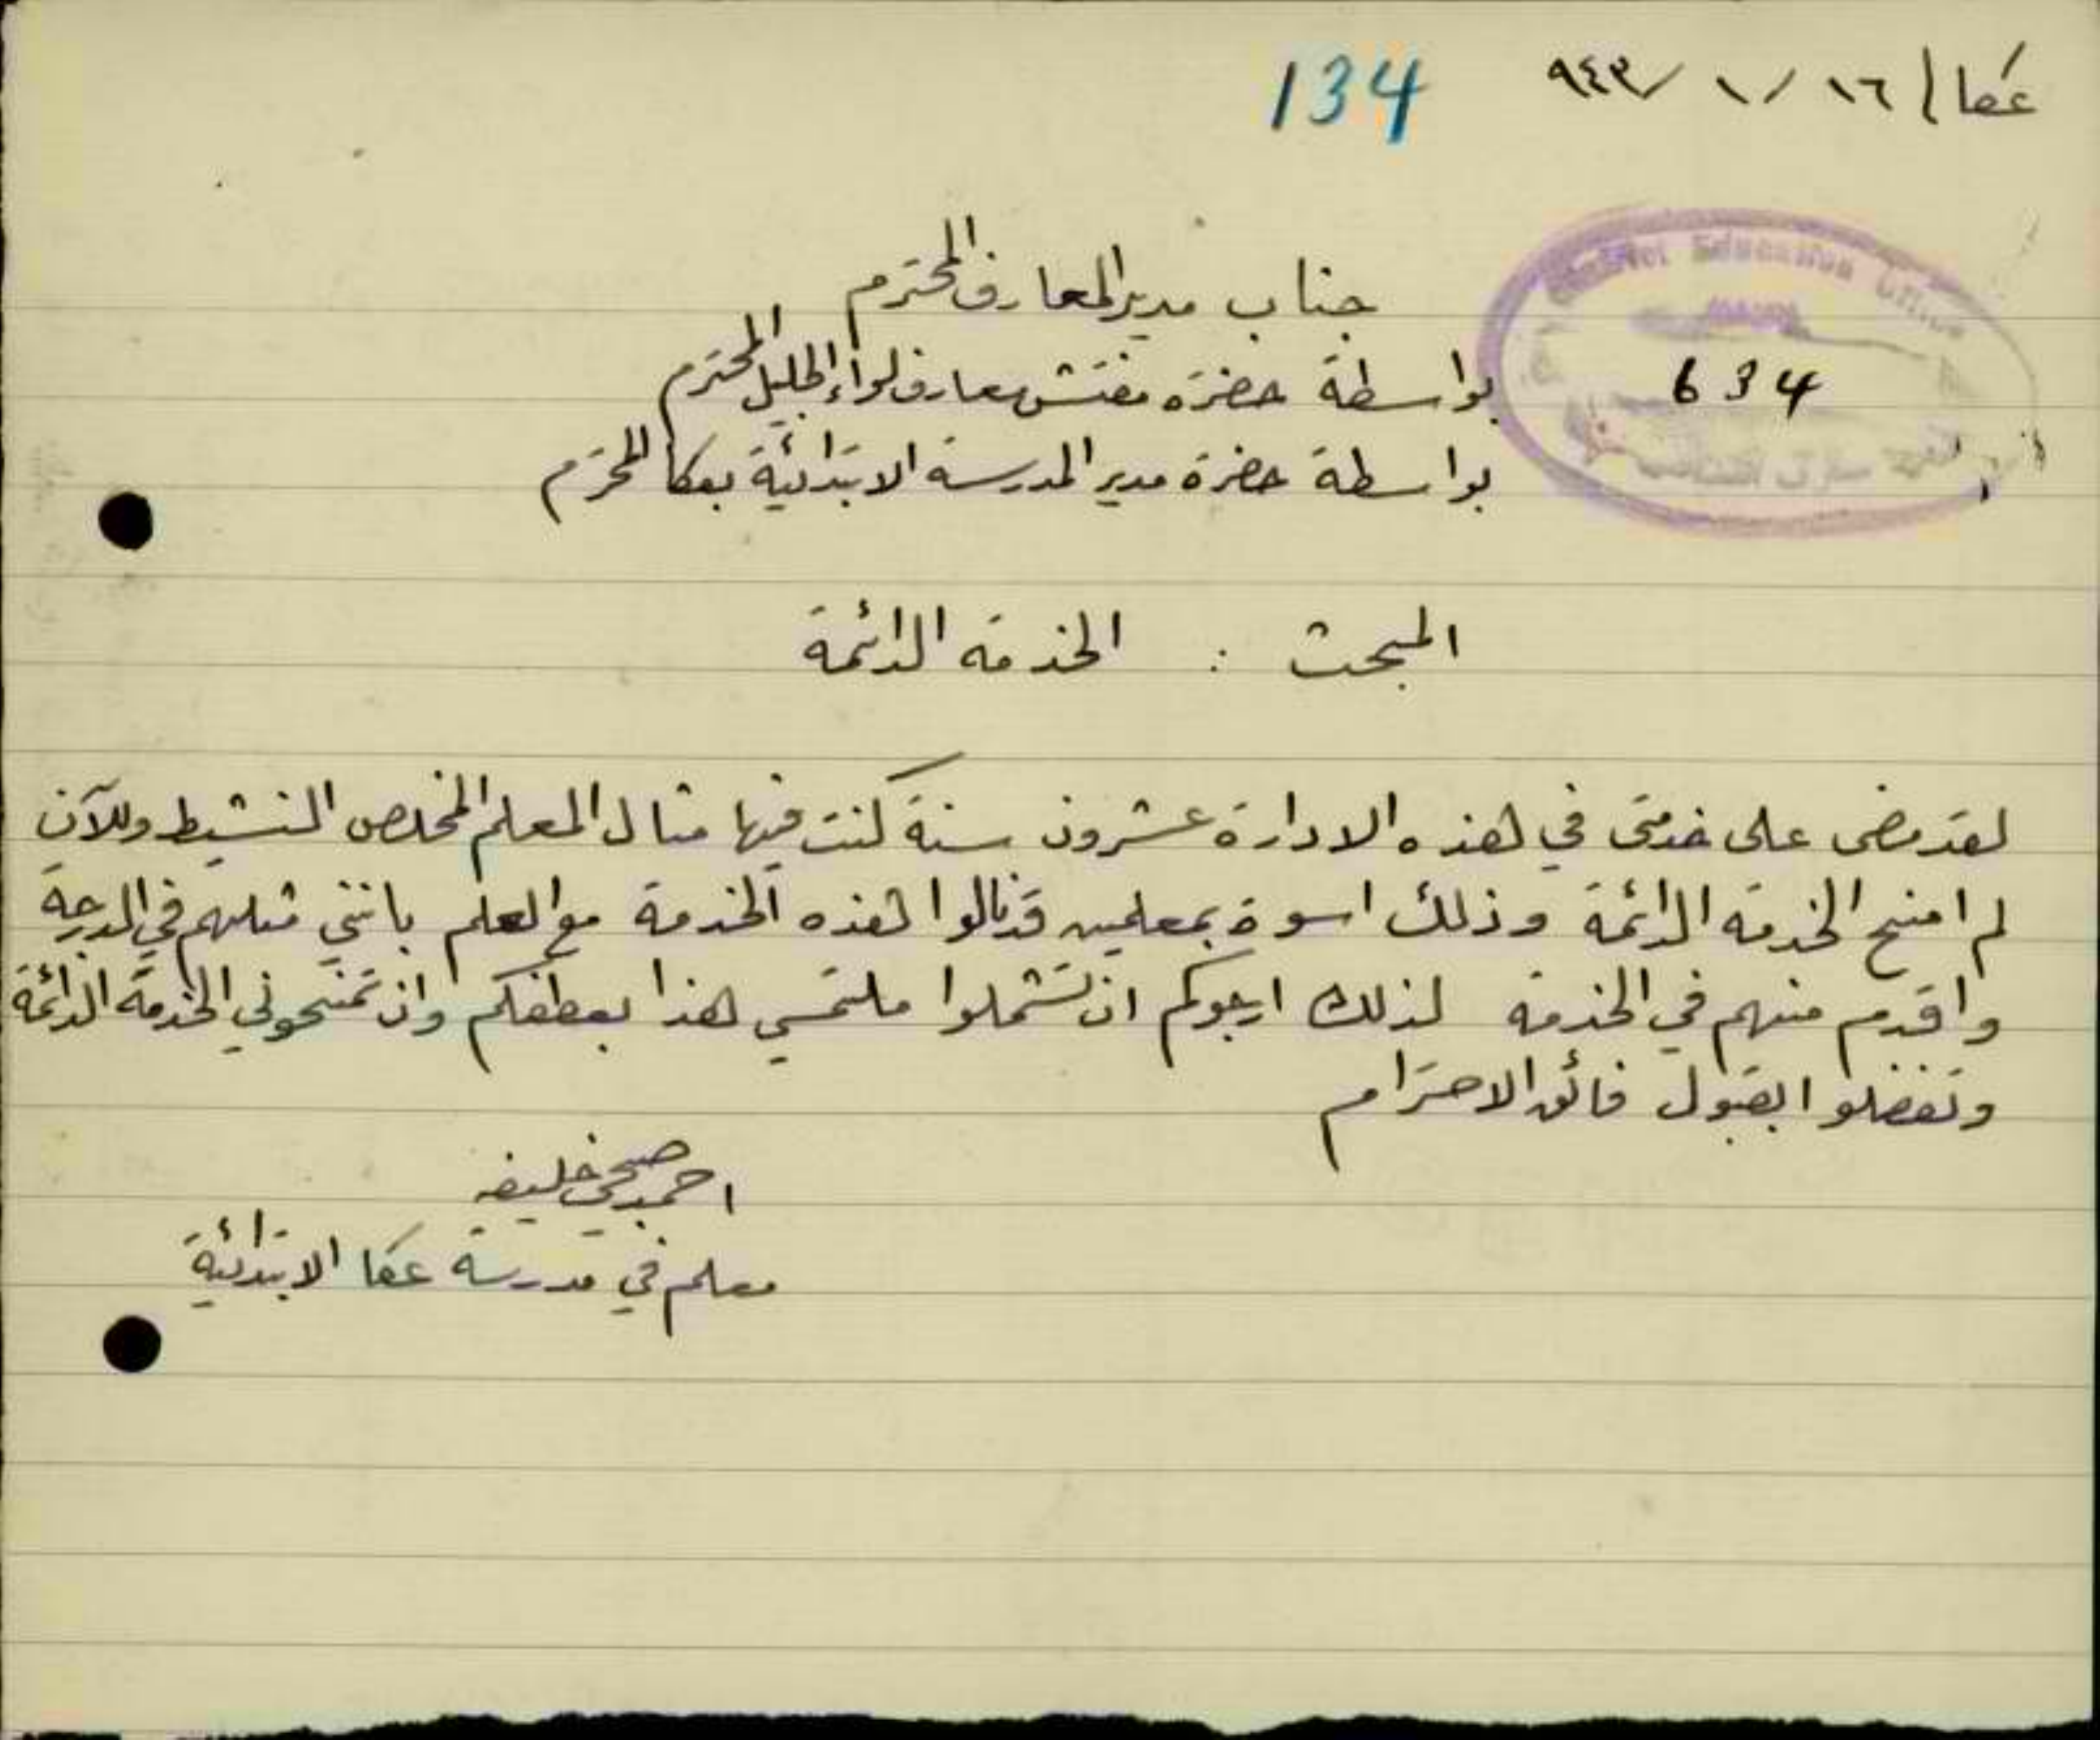 عكا / ١٦ / ١ / ٩٤٣
134
جناب مدير المعارف المحترم
District Education Office
634
بواسطة حضرة مفتش معارف لواء الجليل المحترم
بواسطة حضرة مدير المدرسة الابتدائية بعكا المحترم
المبحث : الخدمة الدائمة
لقد مضى على خدمتي في هذه الادارة عشرون سنة كنت فيها مثال المعلم المخلص النشيط وللآن
لم امنح الخدمة الدائمة وذلك اسوة بمعلمين قد نالوا هذه الخدمة مع العلم بانني مثلهم في الدرجة
واقدم منهم في الخدمة لذلك ارجوكم ان تشملوا ملتمسي هذا بعطفكم وان تمنحوني الخدمة الدائمة
وتفضلوا بقبول فائق الاحترام
احمد صبحي خليفه
معلم في مدرسة عكا الابتدائية